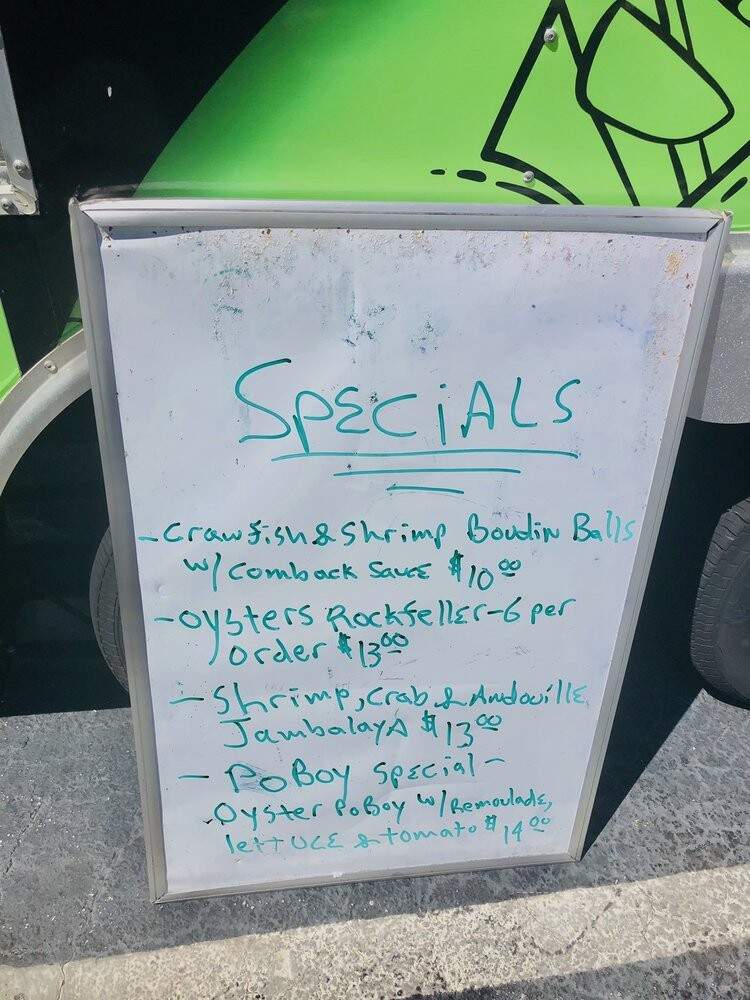 SPECiALS
- Crawfish & Shrimp Boudin Balls
w/ Comback Sauce $10.00
- Oysters Rockfeller - 6 per
order $13.00
- Shrimp, Crab, & Andouille
Jambalaya $13.00
- PoBoy Special -
Oyster PoBoy w/ Remoulade,
lettuce & tomato $14.00